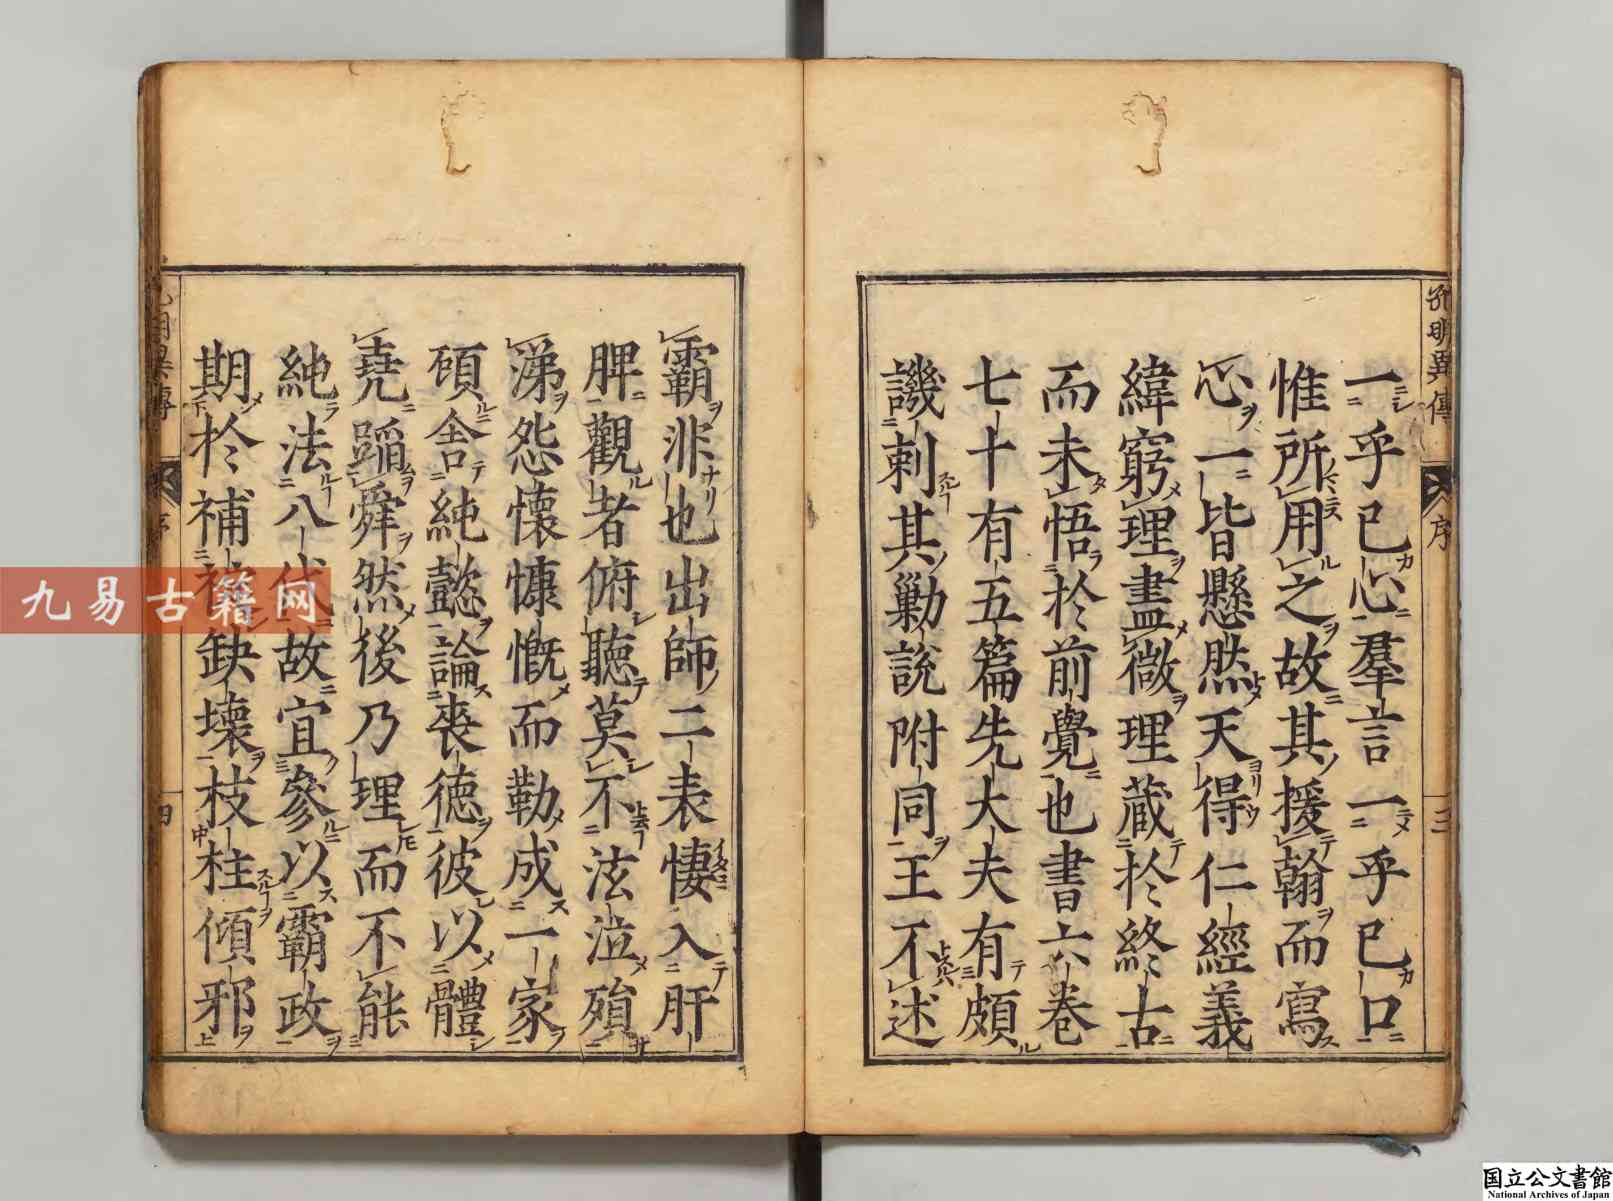 孔明異傳
序
三
一乎已心羣言一乎已口
惟所用之故其援翰而寫
心一皆懸然天得仁經義
緯窮理盡微理蔵於終古
而未悟於前覺也書六卷
七十有五篇先大夫有頗
譏刺其勦説附同王不述
霸非也出師二表悽入肝
脾觀者俯聴莫不泫泣殞
涕怨懷慷慨而勒成一家
頋舎純懿論喪德彼以體
堯蹈舜然後乃理而不能
純法八代故宜參以霸政
期於補缺壞枝柱傾邪
四
九易古籍网
国立公文書館
National Archives of Japan